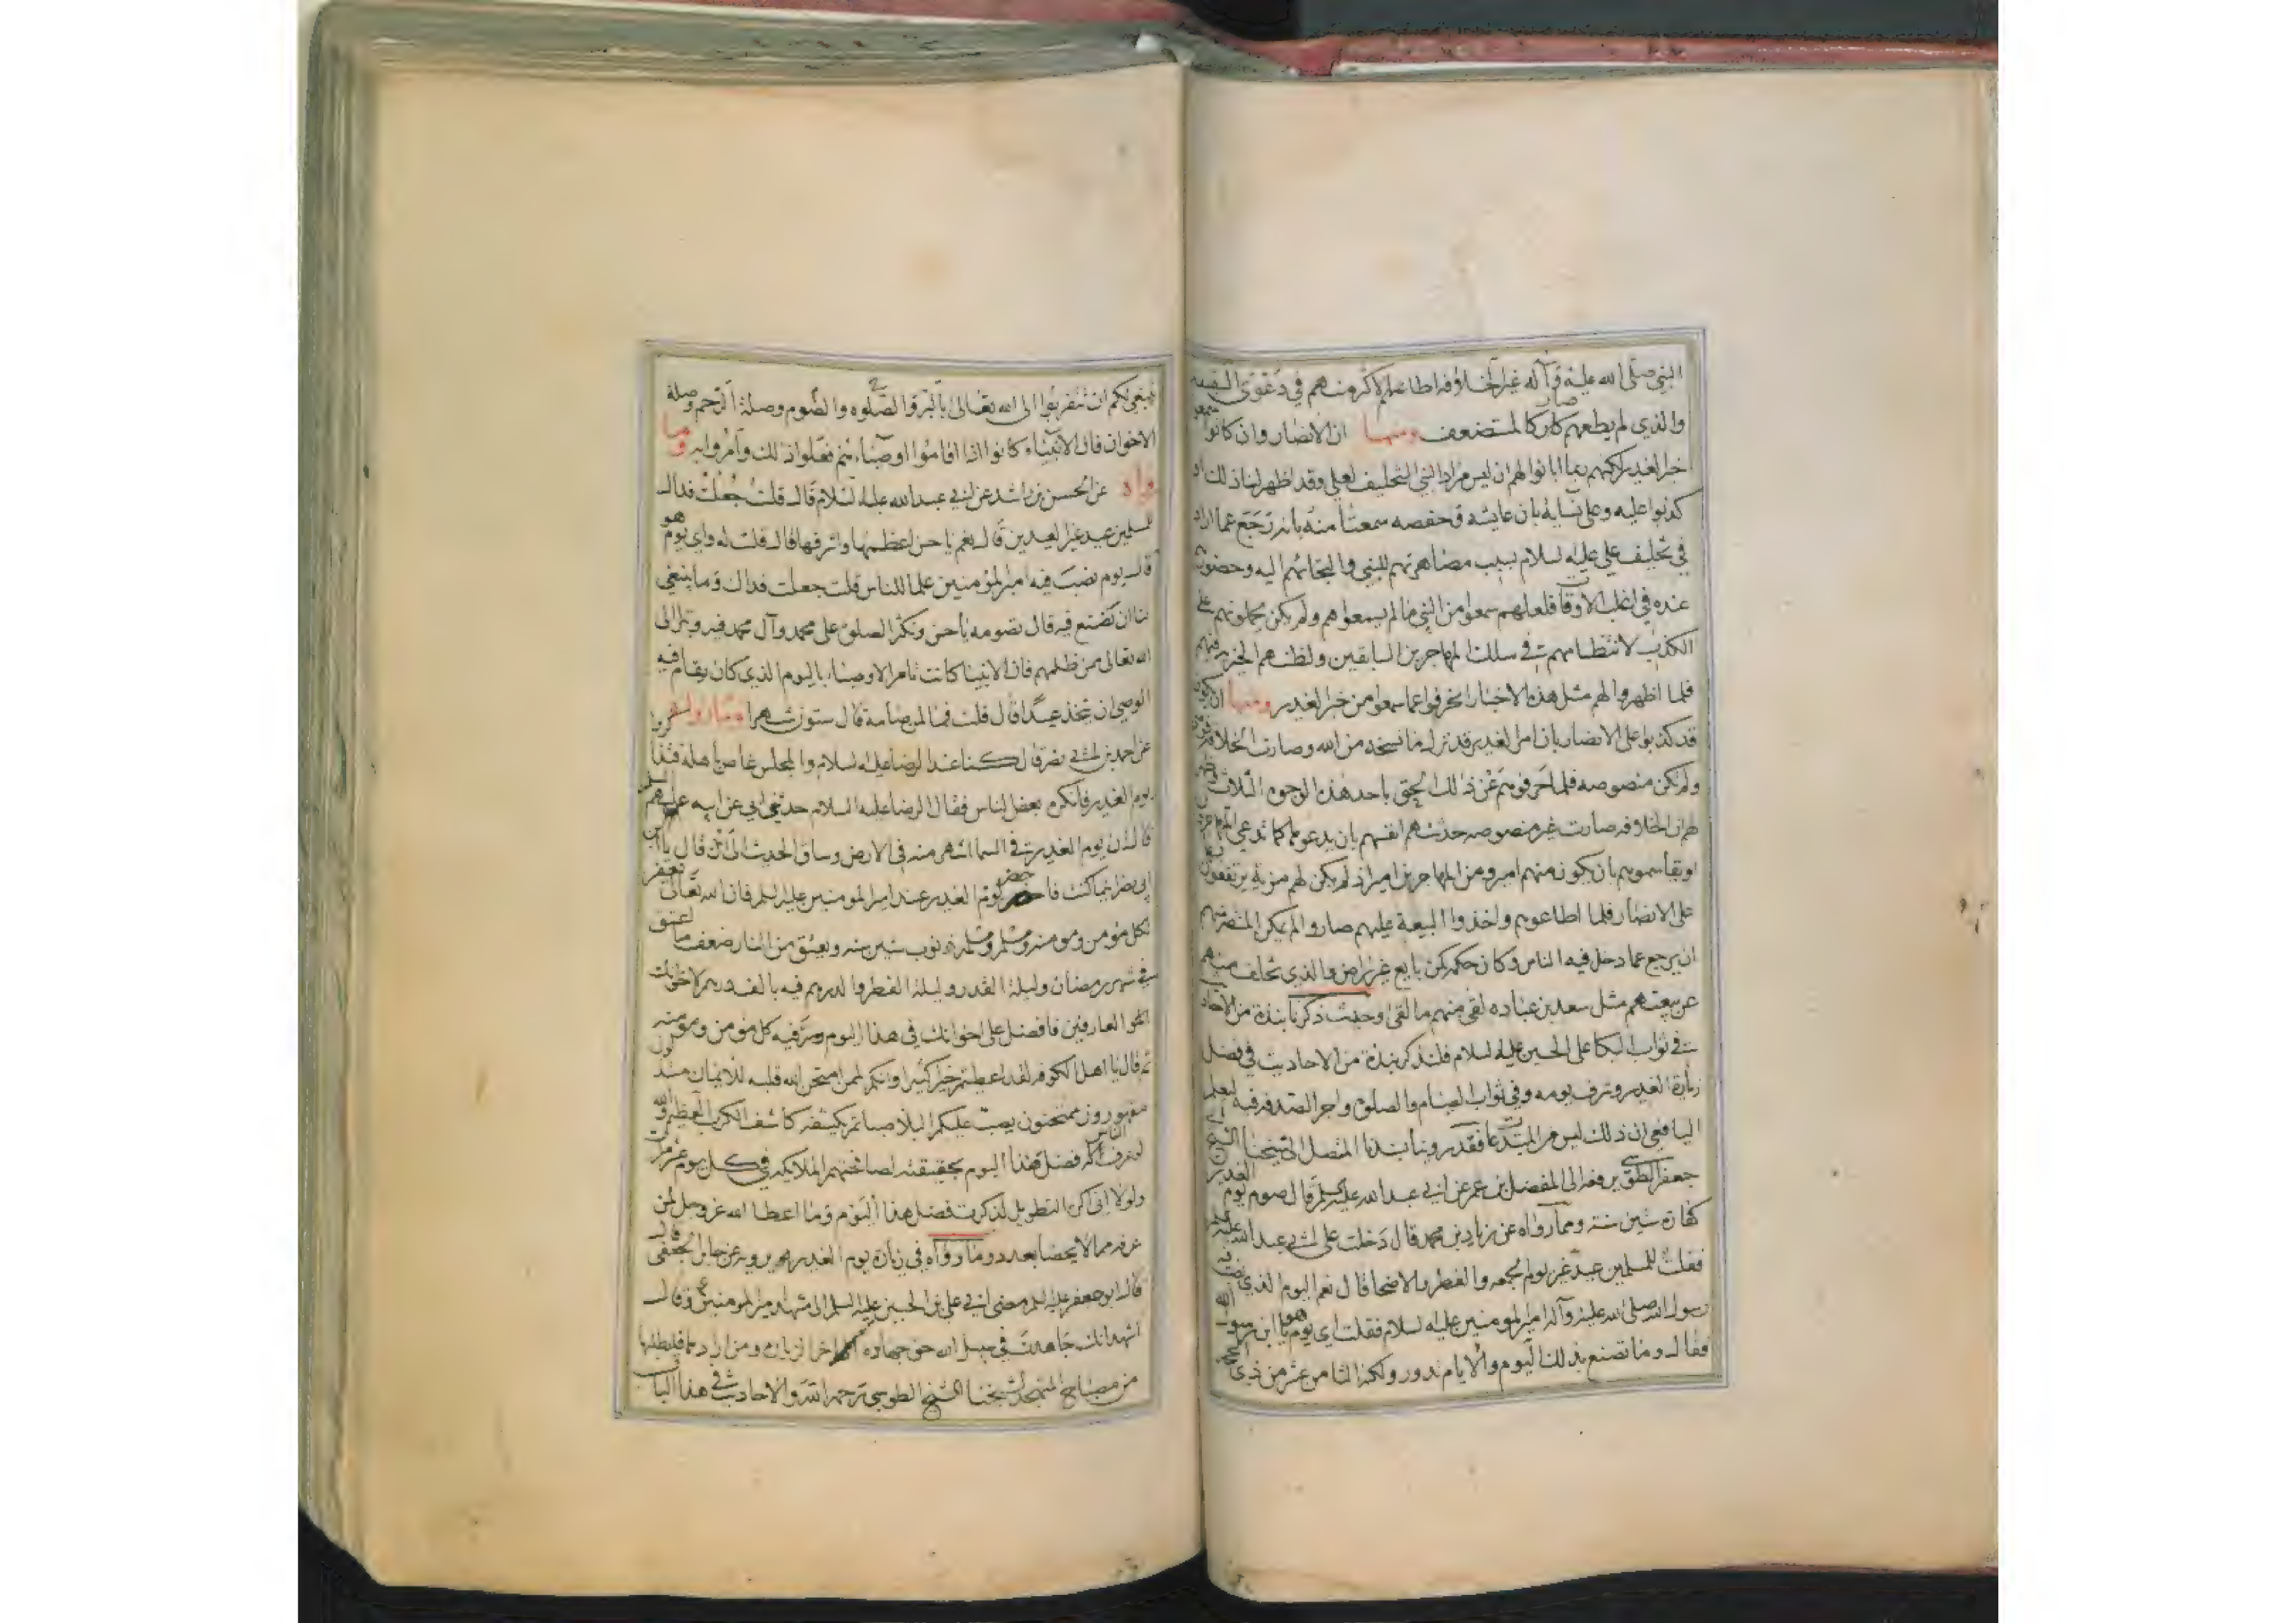 النبي صلى الله عليه وآله غير الخلافه اطاعهم لاكثر منهم في دعوى البقيه
والذي لم يطعهم صار كالمستضعف ومنها ان الانصار وان كانوا
خبر الغدير لكنهم ربما ابانوا لهم ان ليس مراد النبي التخليف لعلي وقد اظهر لنا ذلك
كذبوا عليه وعلى نسائه بان عايشه وحفصه سمعتا منه بانه رجع عما اراد
في تخليف علي عليه السلام بسبب مصاهرتهم للنبي والتجائهم اليه وحضورهم
عنده في اغلب الاوقات فلعلهم سمعوا من النبي ما لم يسمعوا هم ولم يكن يحملونهم على
الكذب لانتظامهم في سلك المهاجرين السابقين ولظنهم الخير فيهم
فلما اظهروا لهم مثل هذه الاخبار انحرفوا عما سمعوا من خبر الغدير ومنها ان يكون
قد كذبوا على الانصار بان امر الغدير قد نزل ما نسخه من الله وصارت الخلافه
ولم يكن منصوصه فلما احرفوهم عن ذلك الحق باحد هذه الوجوه الثلاث
لهم ان الخلافه صارت غير منصوصه حدثتهم انفسهم بان يدعوها كما تدعي المهاجرين
او يقاسموهم بان يكون منهم امير ومن المهاجرين امير اذ لم يكن لهم مزية يرتفعون
على الانصار فلما اطاعوهم واخذوا البيعة عليهم صاروا لم يمكن المنصرفهم
ان يرجع عما دخل فيه الناس وكان حكمه كمن بايع غير راض والذي تخلف منهم
عن بيعتهم مثل سعد بن عباده لقى منهم ما لقى وحيث ذكرنا نبذة من الاحاديث
في ثواب البكا على الحسين عليه السلام فلنذكر نبذة من الاحاديث في فضل
زيارة الغدير وشرف يومه وفي ثواب الصيام والصلوة واجر الصدقه فيه ليعلم
اليافعي ان ذلك ليس من المبتدعات فقد روينا بسندنا المتصل الى شيخنا الشيخ ابي
جعفر الطوسي يرفعه الى المفضل بن عمر عن ابي عبد الله عليه السلم قال صوم يوم الغدير
كفارة ستين سنة ومما رواه عن زياد بن محمد قال دخلت على ابي عبد الله عليه
فقلت للمسلمين عيد غير يوم الجمعه والفطر والاضحا قال نعم اليوم الذي نصب فيه
رسول الله صلى الله عليه وآله امير المومنين عليه السلام فقلت اي يوم هو يا ابن رسول الله
فقال وما تصنع بذلك اليوم والايام تدور ولكنه الثامن عشر من ذي
ينبغي لكم ان تتقربوا الى الله تعالى بالبر والصلوه والصوم وصلة الرحم وصلة
الاخوان فان الانبياء كانوا اذا اقاموا اوصياءهم فعلوا ذلك وامروا به ومما
رواه عن الحسن بن راشد عن ابي عبد الله عليه السلام قال قلت جعلت فداك
للمسلمين عيد غير العيدين قال نعم يا حسن اعظمها واشرفها قال قلت له واي يوم هو
قال يوم نصب فيه امير المؤمنين علما للناس قلت جعلت فداك وما ينبغي
لنا ان نصنع فيه قال تصومه يا حسن وتكثر الصلوة على محمد وآل محمد فيه وتبرا الى
الله تعالى ممن ظلمهم فان الانبيا كانت تامر الاوصياء باليوم الذي كان يقام فيه
الوصي ان يتخذ عيدا قال قلت فما لمن صامه قال ستون شهرا ومما رواه
عن احمد بن ابي نصر قال كنا عند الرضا عليه السلام والمجلس غاص باهله فتذاكروا
يوم الغدير فانكره بعض الناس فقال الرضا عليه السلام حدثني ابي عن ابيه عليهم السلم
قال ان يوم الغدير في السما اشهر منه في الارض وساق الحديث الى ان قال يا ابن
ابي نصر اينما كنت فاحضر يوم الغدير عند امير المومنين عليه السلم فان الله تعالى يغفر
لكل مؤمن ومومنه ومسلم ومسلمه ذنوب ستين سنه ويعتق من النار ضعف ما اعتق
في شهر رمضان وليلة القدر وليلة الفطر والدرهم فيه بالف درهم لاخوانك
العارفين فافضل على اخوانك في هذا اليوم وسر فيه كل مؤمن ومومنه
ثم قال يا اهل الكوفه لقد اعطيتم خيرا كثيرا وانكم لممن امتحن الله قلبه للايمان مستذلون
مقهورون ممتحنون يصب عليكم البلا صبا ثم يكشفه كاشف الكرب العظيم والله
لو عرف الناس فضل هذا اليوم بحقيقته لصافحتهم الملايكه في كل يوم عشر مرات
ولولا اني اكره التطويل لذكرت فضل هذا اليوم وما اعطا الله عز وجل لمن
عرفه مما لا يحصا بعدد ومما رواه في زيارة يوم الغدير عن جابر الجعفي قال
قال ابو جعفر عليه السلم مضى ابي علي بن الحسين عليه السلم الى مشهد امير المومنين وقال
اشهد انك جاهدت في سبيل الله حق جهاده الى اخر الزيارة ومن ارادها فليطلبها
من مصباح المتهجد لشيخنا الشيخ الطوسي رحمه الله والاحاديث في هذا الباب